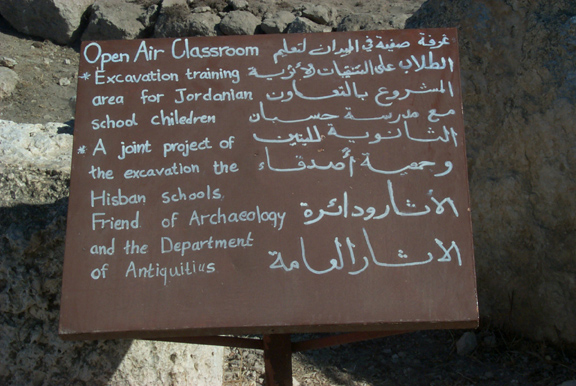 Open Air Classroom
* Excavation training
area for Jordanian
school chiledren
* A joint project of
the excavation the
Hisban schools,
Friend of Archaeology
and the Department
of Antiquitius
غرفة صفية في الميدان لتعليم
الطلاب على التنقيبات الأثرية
المشروع بالتعاون
مع مدرسة حسبان
الثانوية للبنين
وجمعية أصدقاء
الأثار ودائرة
الاثار العامة